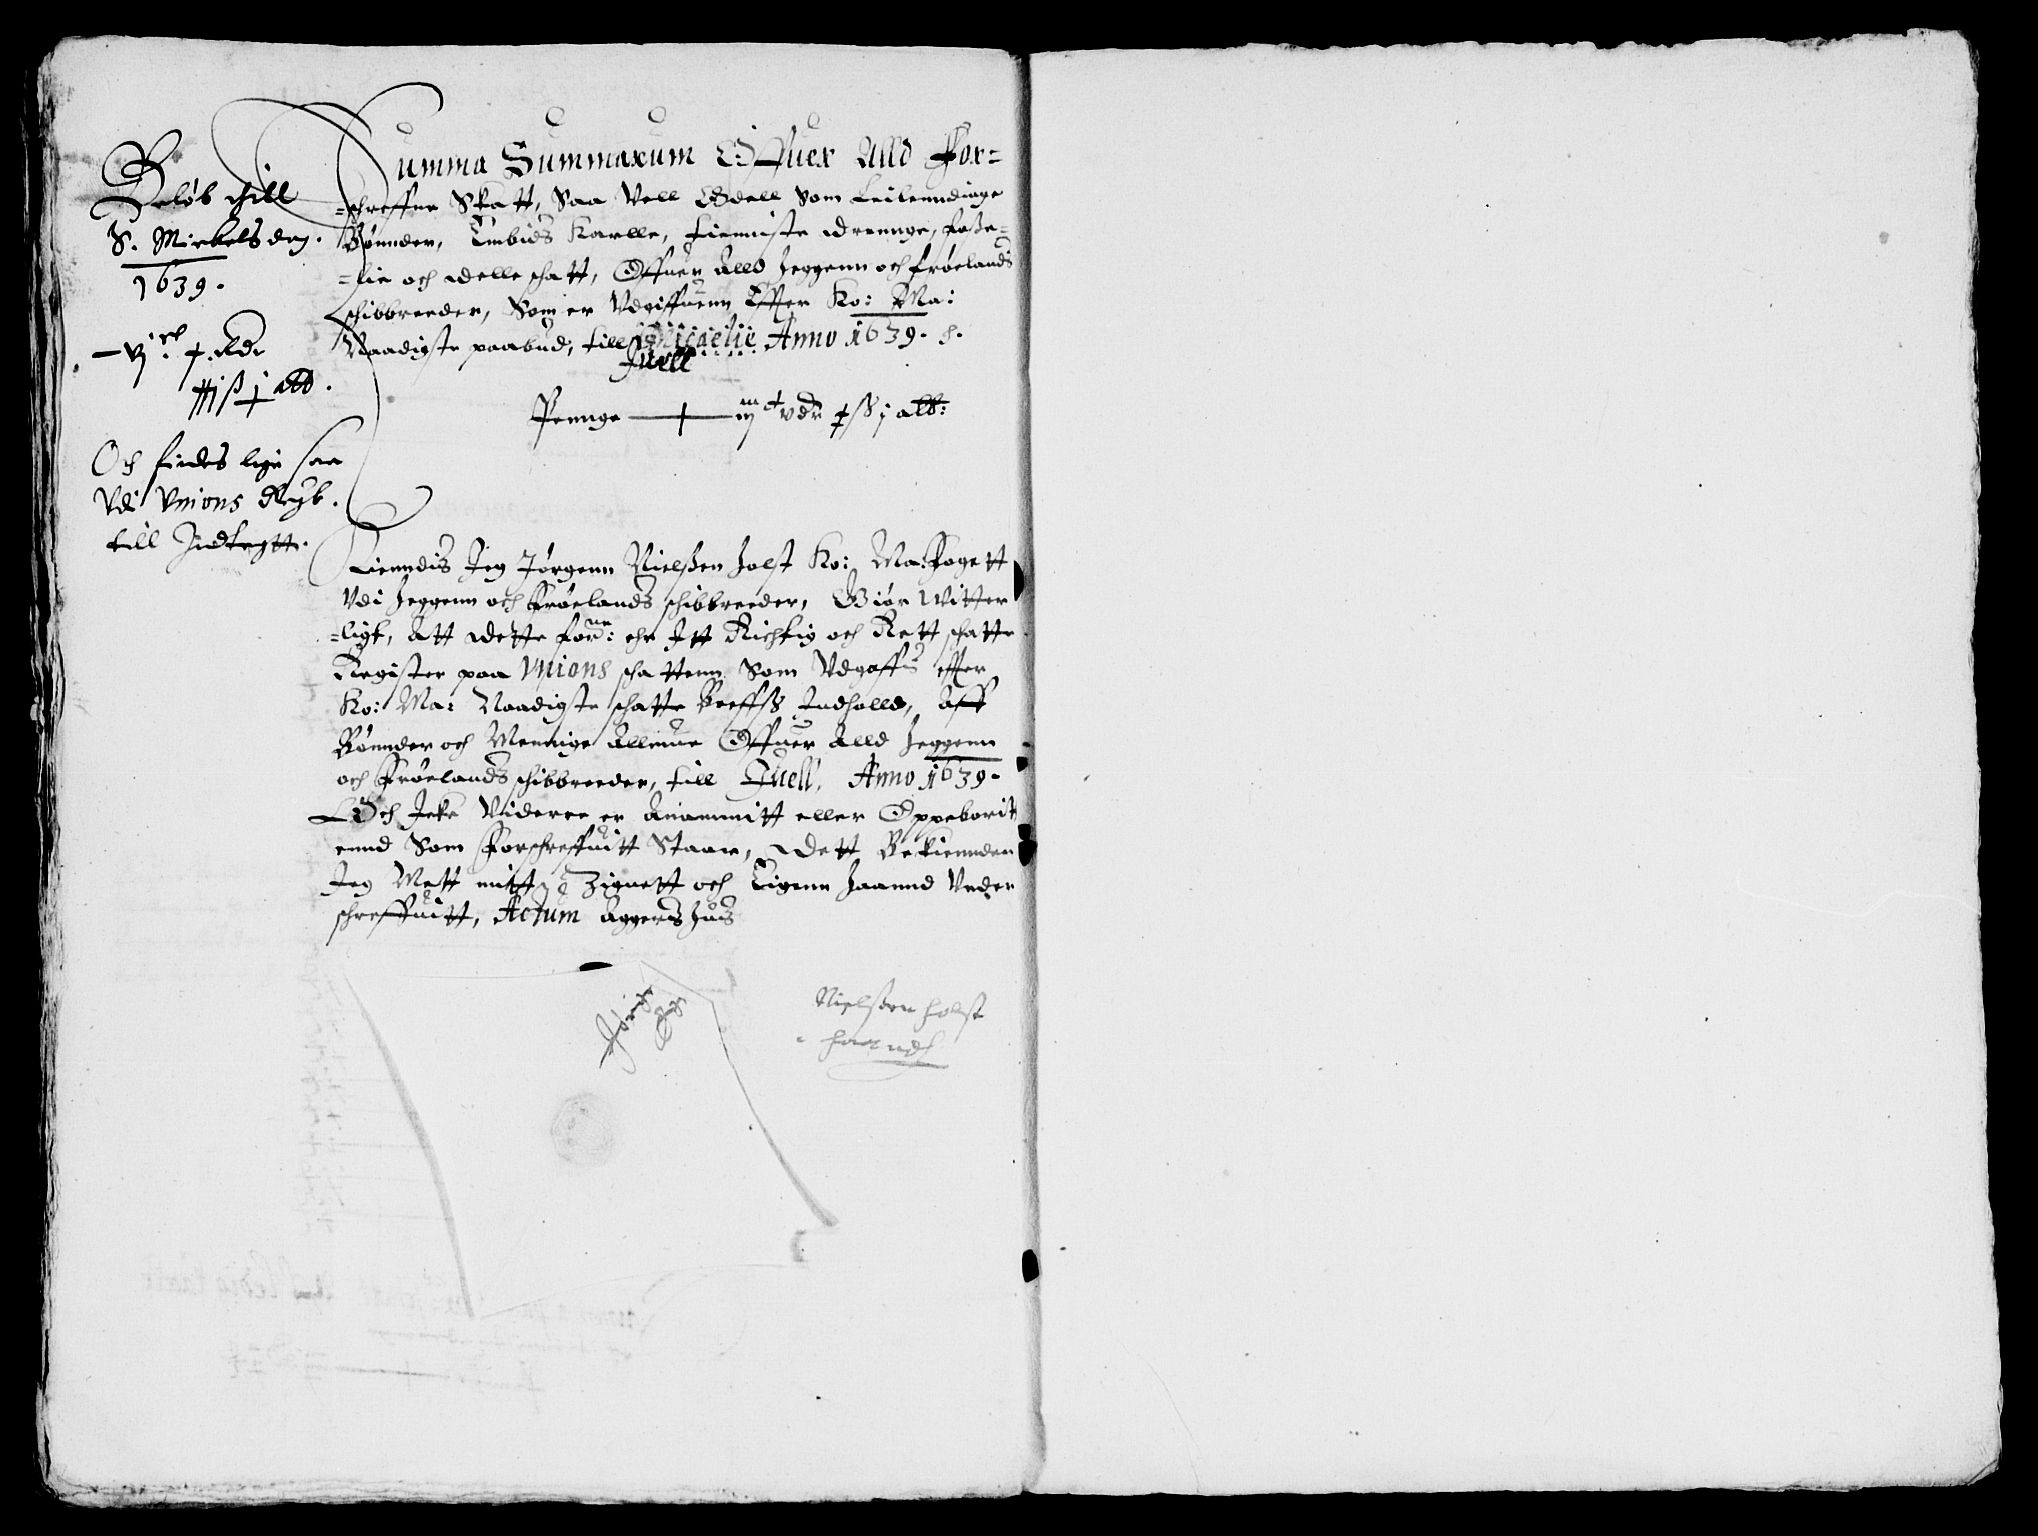 Beløb thill
S. Mickels dag.
1639.
Och findes lige saa
Vdi Vnions Regb.
till Indtegtt.
Summa Summarum Offuer Alld For=
=schreffne Skatt, Saa Vell Odell Som Leilenndinge
Bønnder, Embids Karlle, tienniste drennge, foße=
=tie och ødelle schatt, Offuer Alld Heggenn och frøelands
schibbreeder, Som er Vdgiffuenn Effter Ko: Ma:
Naadigste paabud, till Micaelie Anno 1639.
Juell
Pennge
Kienndis Jeg Jørgenn Nielßen Holst Ko: Ma: Fogett
Vdi Heggenn och Frøelands schibbreeder, Giør Witter
=ligt, Att dette forne: ehr Jtt Richtig och Rett schatte
Register paa Vnions schattenn Som Vdgaffis effter
Ko: Ma: Naadigste schatte breffs Indholld, Aff
Bønnder och Mennige Allmue Offuer Alld Heggenn
och Frøelands schibbreeder, till Juell, Anno 1639.
Och Icke Videree er Anammitt eller Oppeborit
ennd Som Forschreffuitt Staar, Dett Bekiennder
Jeg Mett mitt Zignett och Eigenn Haannd Vnder
schreffuitt, Actum Aggers Huus
Nielßenn Holst
haandt